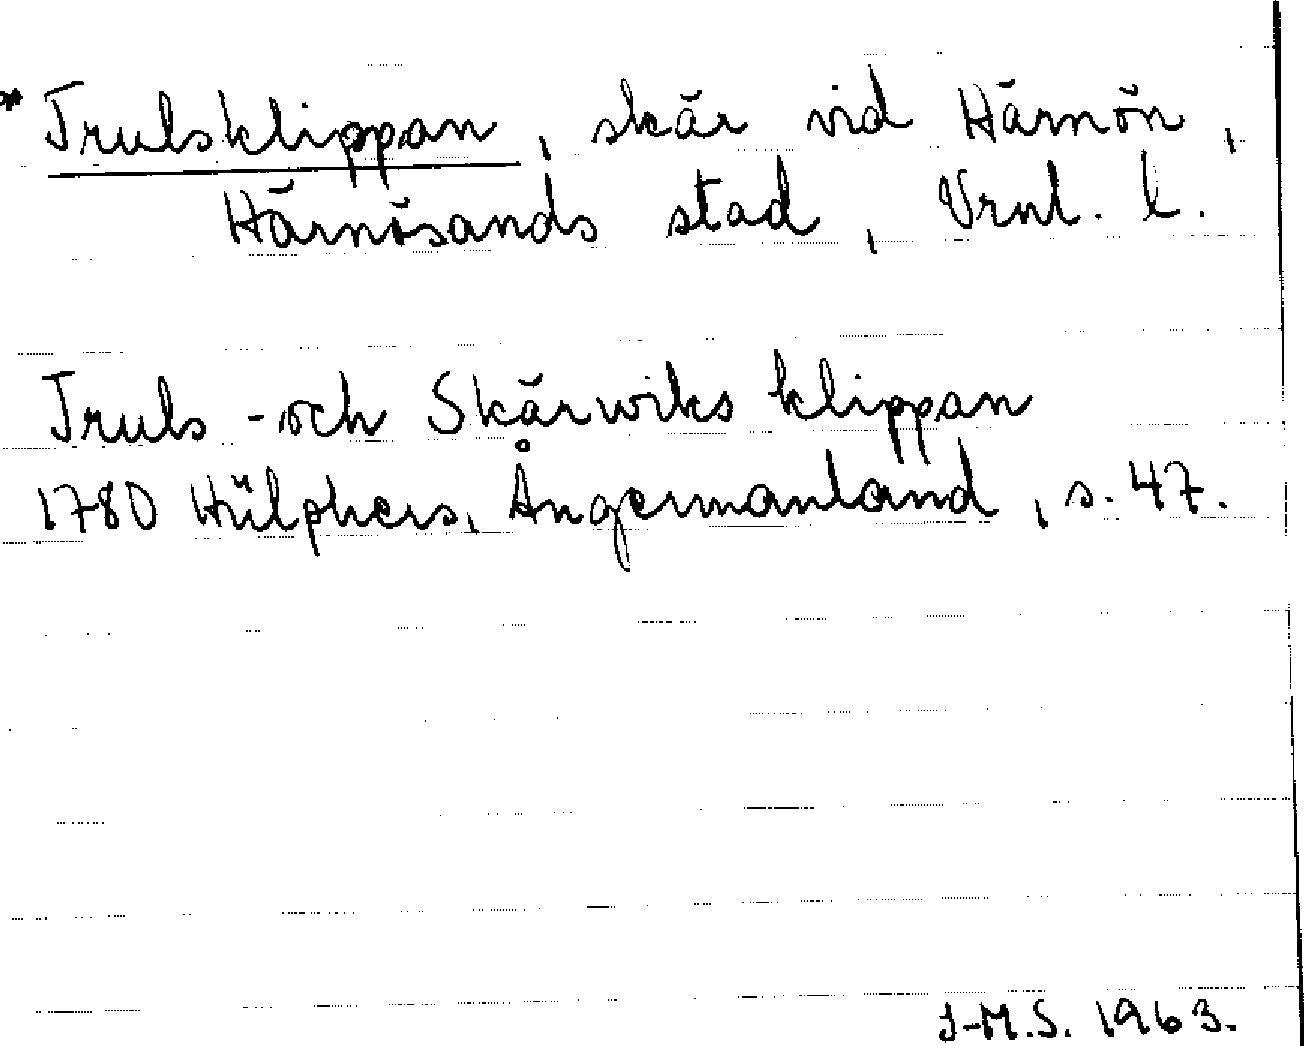 * Trulsklippan, skär vid Härnön,
Härnösands stad, Vrnl. l.
Truls - och Skärwiks klippan
1780 Hülphers, Ångermanland, s. 47.
J-M.S. 1963.